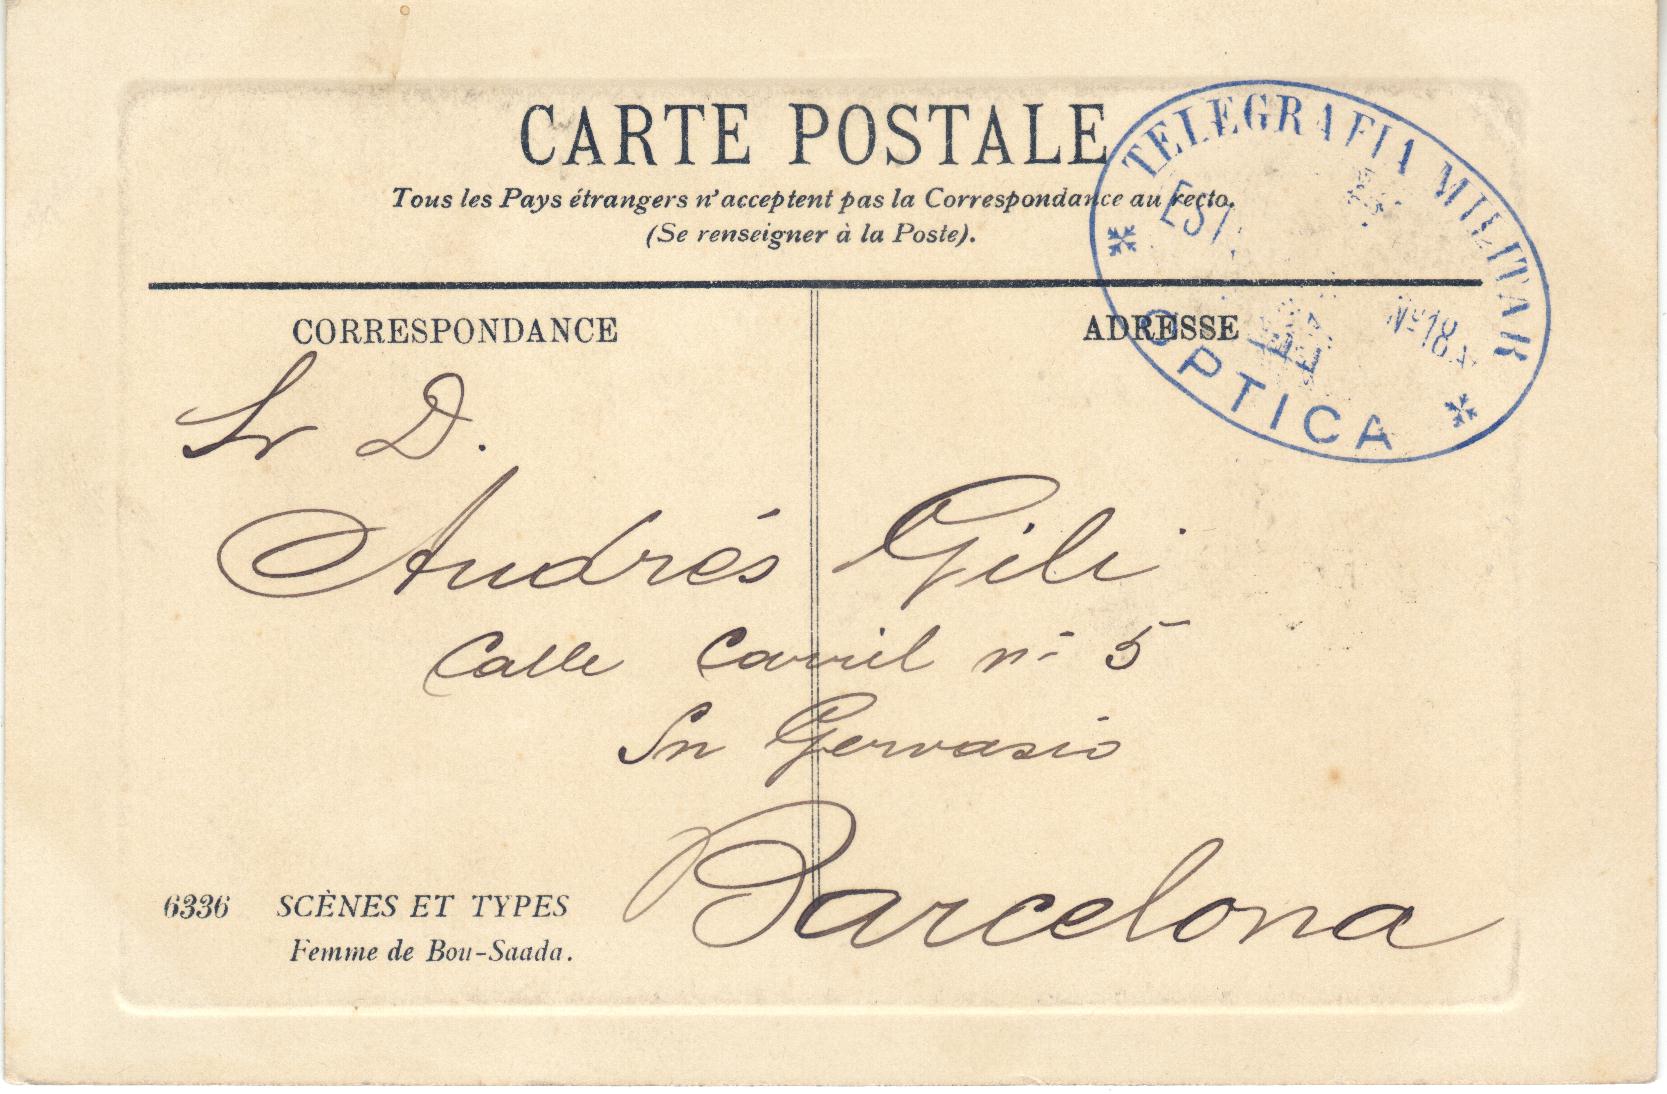 CARTE POSTALE
Tous les Pays étrangers n'acceptent pas la Correspondance au recto.
(Se renseigner à la Poste).
TELEGRAFIA MILITAR
EST
Nº 18
OPTICA
CORRESPONDANCE
ADRESSE
Sr D.
Andrés Gili
Calle Carril nº 5
Sn Gervasio
Barcelona
6336 SCÈNES ET TYPES
Femme de Bou-Saada.